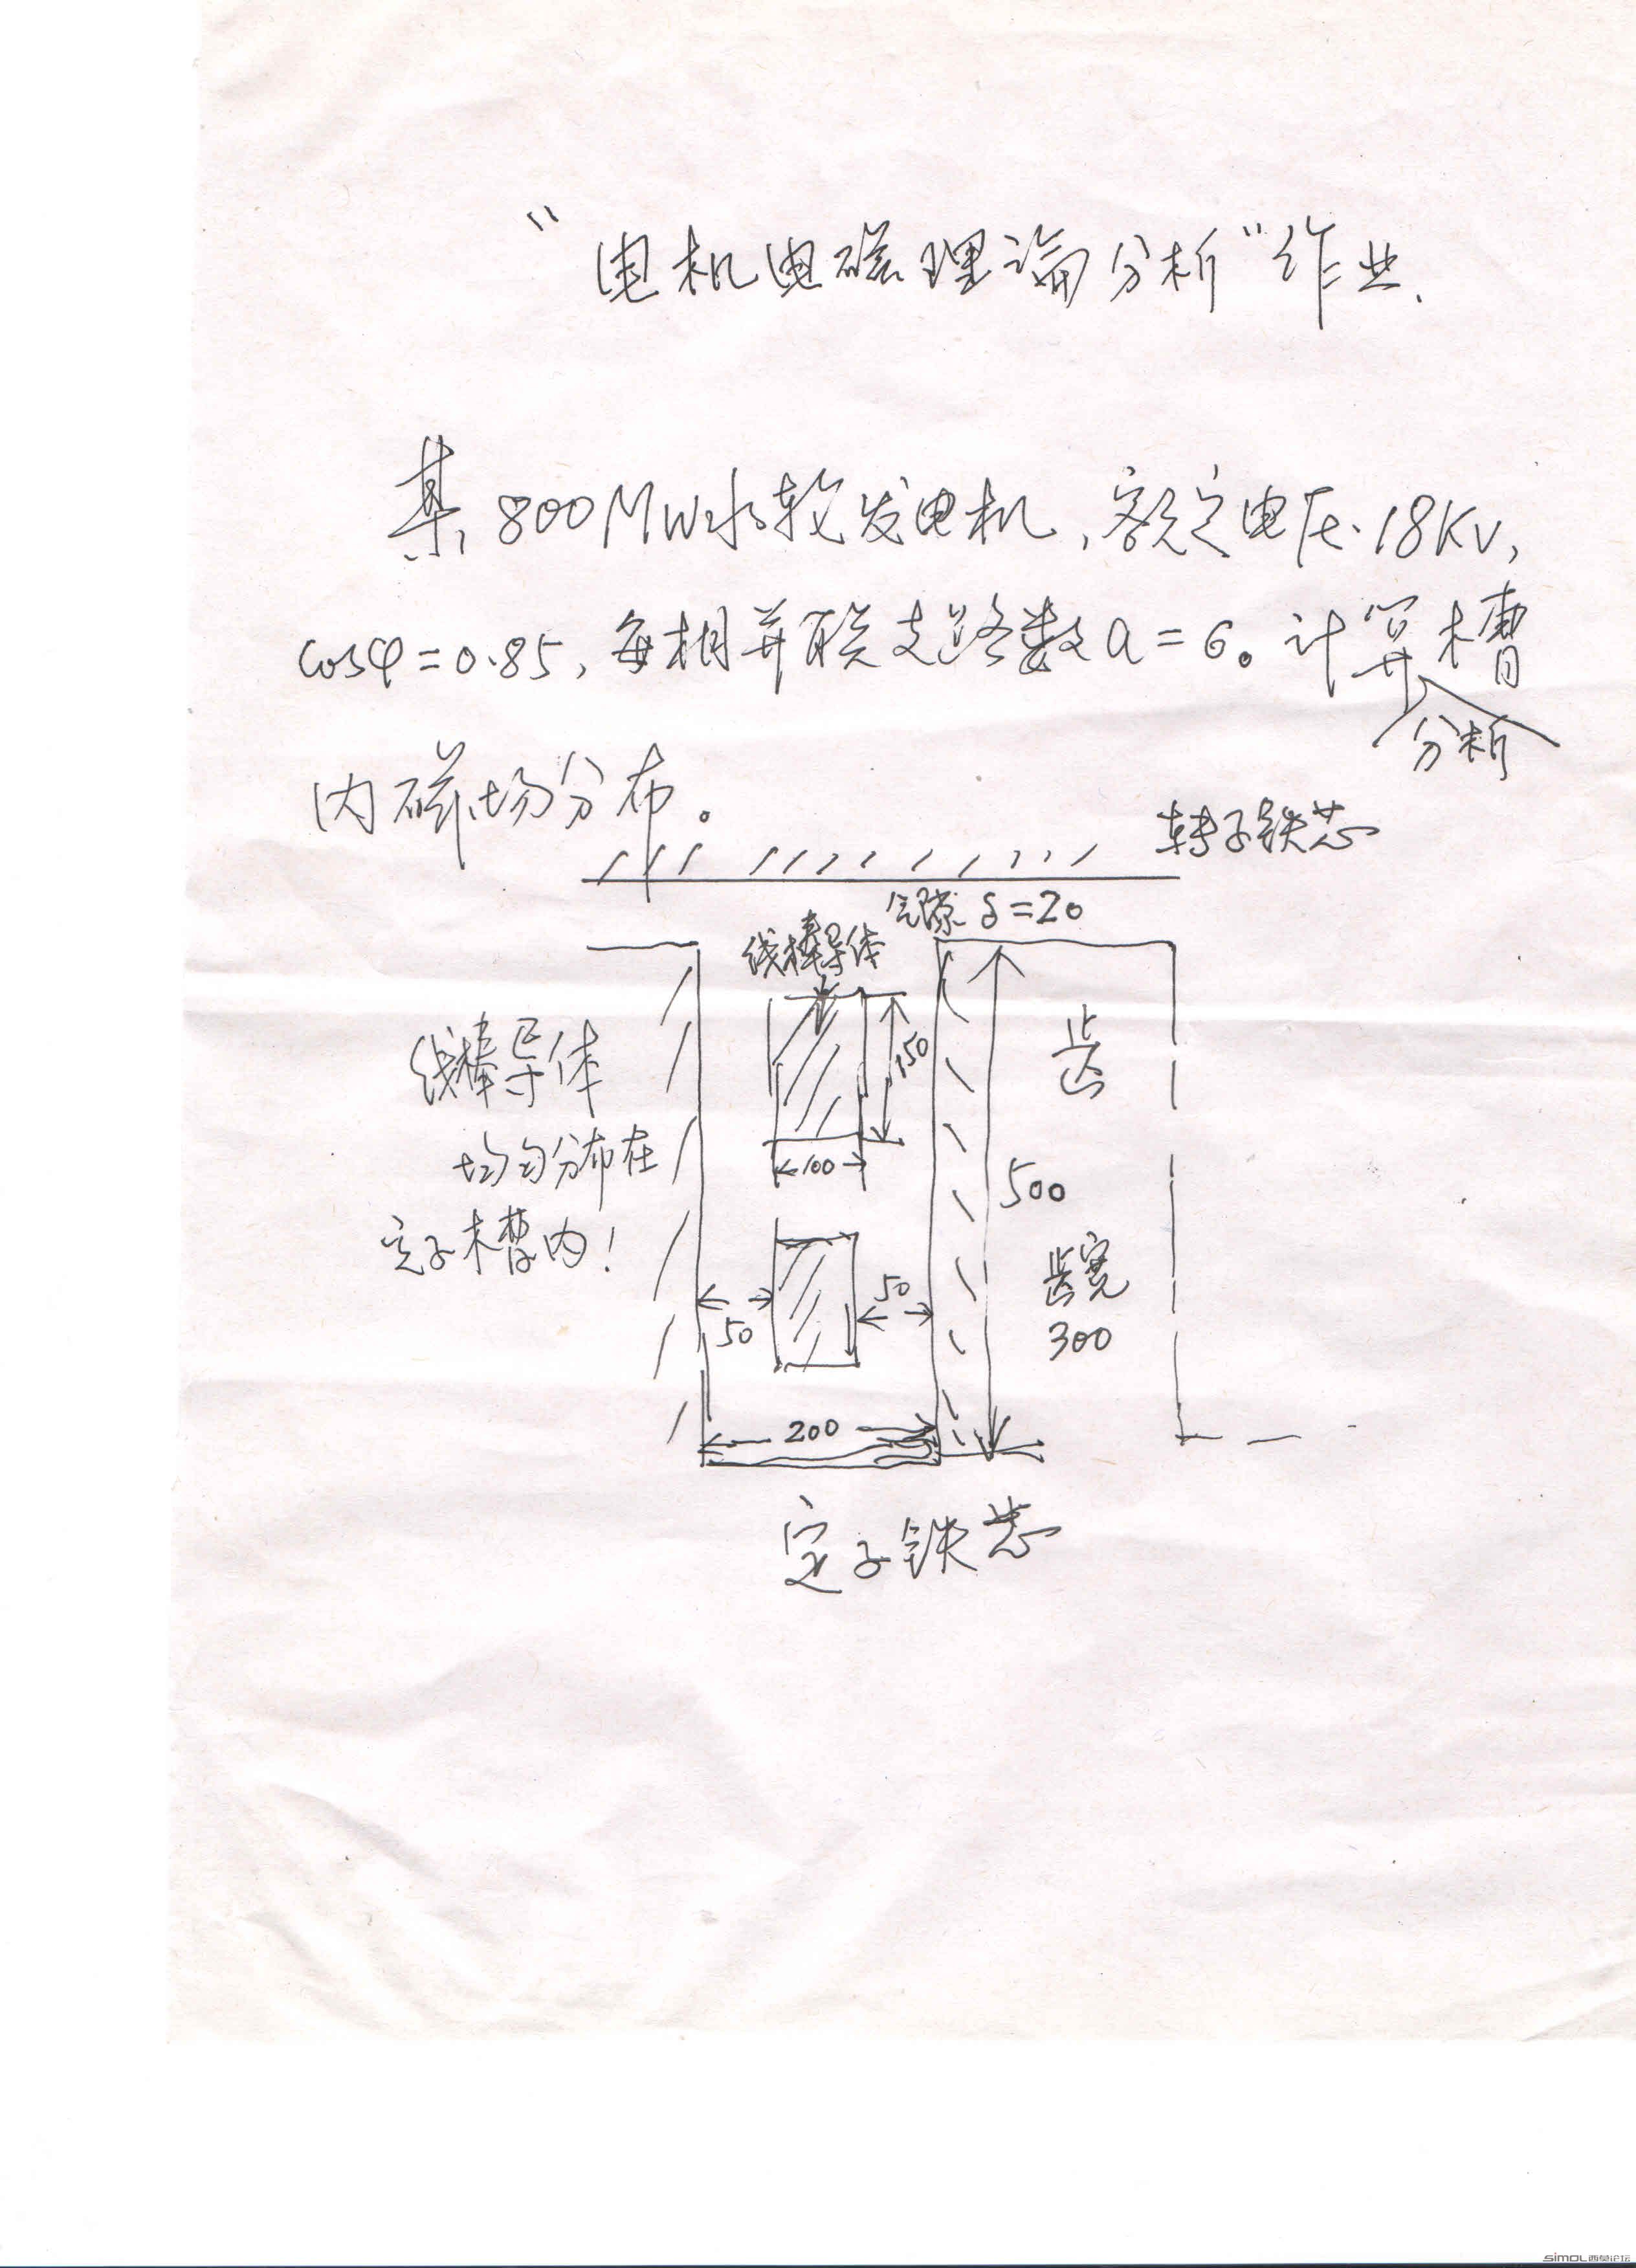 “电机电磁理论分析”作业.
某800MW水轮发电机,额定电压18KV,
cosφ=0.85,每相并联支路数a=6。计算槽
分析
内磁场分布。
转子铁芯
气隙 δ=20
线棒导体
线棒导体
均匀分布在
定子槽内!
150
100
齿
500
齿宽
300
50
50
200
定子铁芯
simol西莫论坛